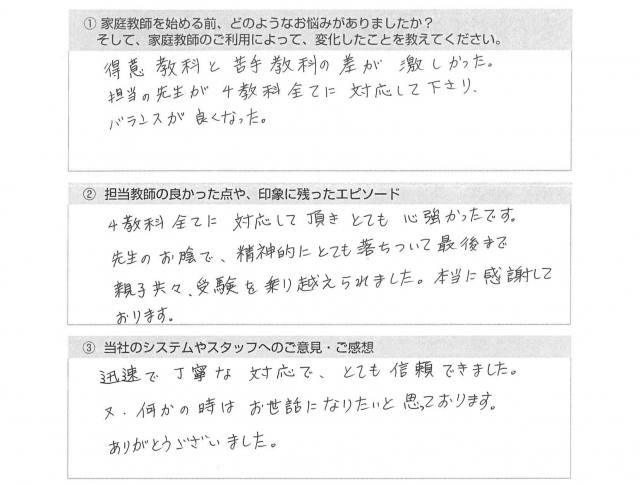 ① 家庭教師を始める前、どのようなお悩みがありましたか？
そして、家庭教師のご利用によって、変化したことを教えてください。
得意教科と苦手教科の差が激しかった。
担当の先生が4教科全てに対応して下さり、
バランスが良くなった。
② 担当教師の良かった点や、印象に残ったエピソード
4教科全てに対応して頂きとても心強かったです。
先生のお陰で、精神的にとても落ちついて最後まで
親子共々、受験を乗り越えられました。本当に感謝して
おります。
③ 当社のシステムやスタッフへのご意見・ご感想
迅速で丁寧な対応で、とても信頼できました。
又、何かの時はお世話になりたいと思っております。
ありがとうございました。